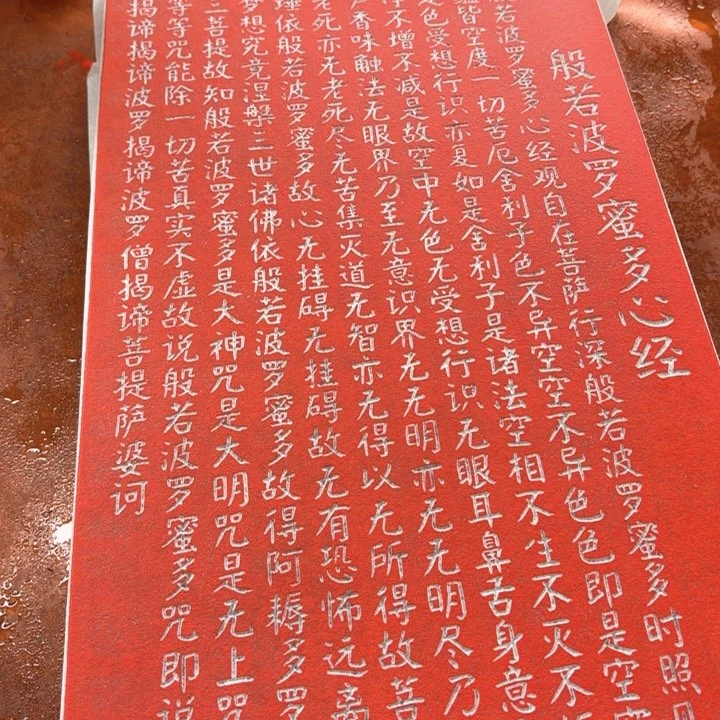 般若波罗蜜多心经
若波罗蜜多心经观自在菩萨行深般若波罗蜜多时照
蕴皆空度一切苦厄舍利子色不异空空不异色色即是空
是色受想行识亦复如是舍利子是诸法空相不生不灭不
净不增不减是故空中无色无受想行识无眼耳鼻舌身意
香味触法无眼界乃至无意识界无无明亦无无明尽乃
老死亦无老死尽无苦集灭道无智亦无得以无所得故菩
埵依般若波罗蜜多故心无挂碍无挂碍故无有恐怖远离
梦想究竟涅槃三世诸佛依般若波罗蜜多故得阿耨多罗
三菩提故知般若波罗蜜多是大神咒是大明咒是无上咒
等等咒能除一切苦真实不虚故说般若波罗蜜多咒即说
揭谛揭谛波罗揭谛波罗僧揭谛菩提萨婆诃